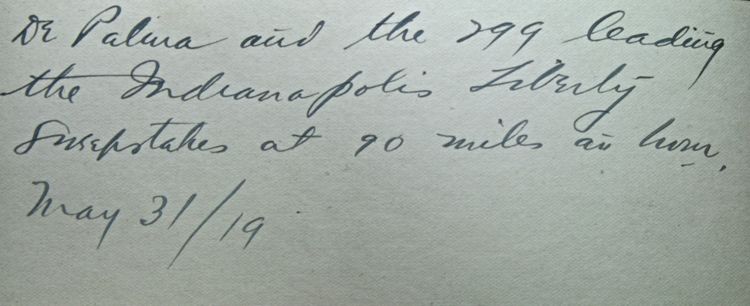 De Palma and the 299 leading
the Indianapolis Liberty
Sweepstakes at 90 miles an hour.
May 31/19